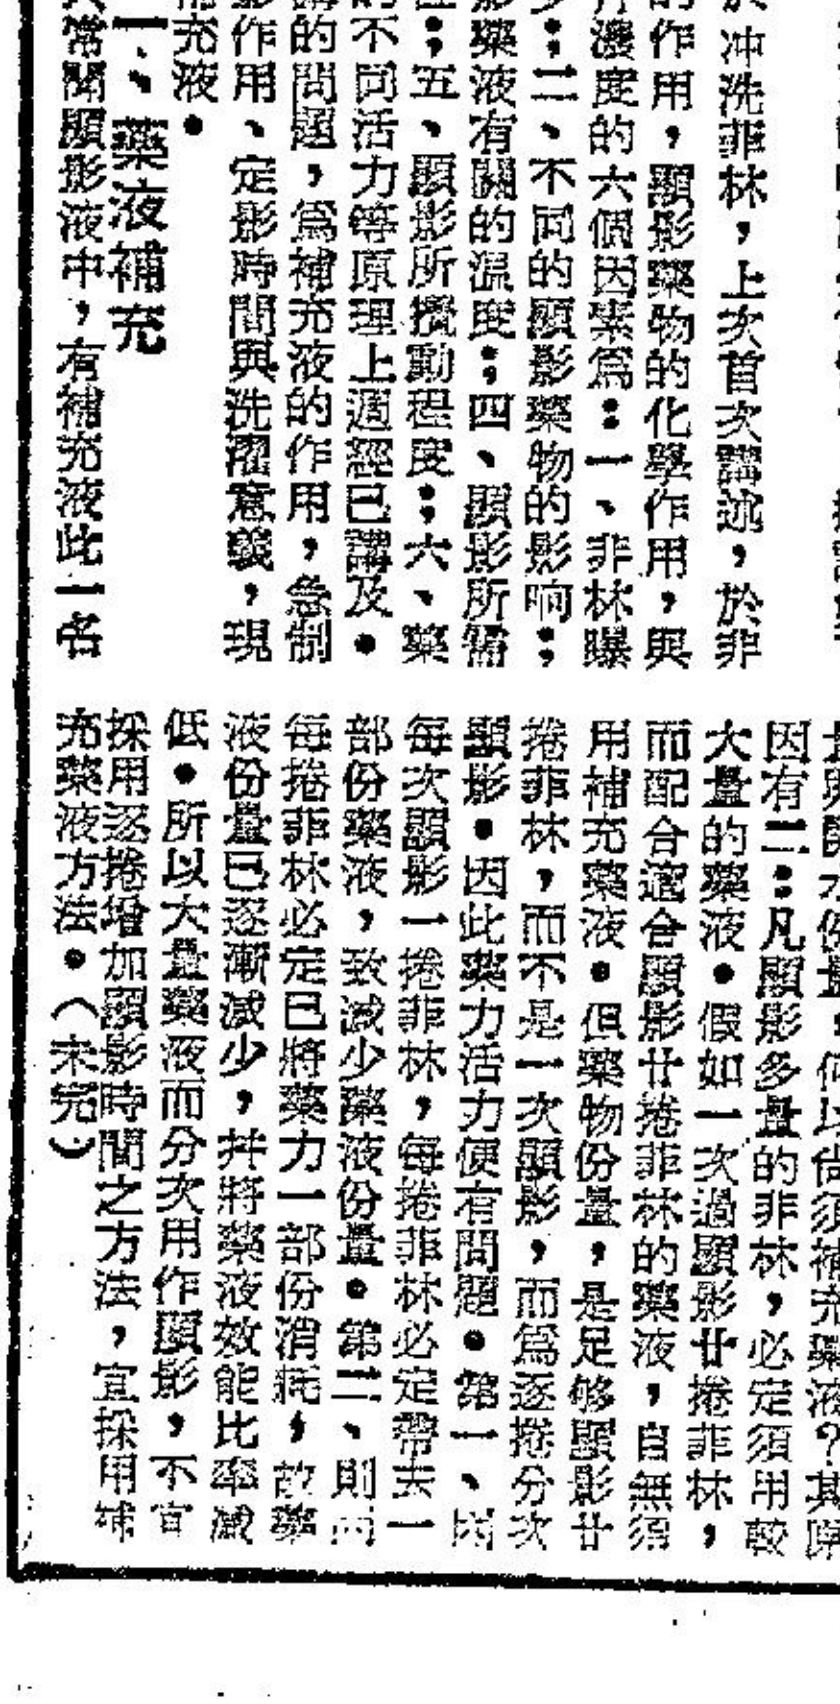 於冲洗菲林，上次首次講述，於非
的作用，顯影藥物的化學作用，與
濃度的六個因素爲：一、非林曝
少；二、不同的顯影藥物的影响；
影藥液有關的溫度；四、顯影所需
；五、顯影所攪動程度；六、藥
的不同活力等原理上週經已講及。
講的問題，爲補充液的作用，急制
影作用、定影時間與洗濯意義，現
補充液。
一、藥液補充
常閱顯影液中，有補充液此一名
因有二：凡顯影多量的非林，必定須用較
大量的藥液。假如一次過顯影廿捲菲林，
而配合適合顯影廿捲菲林的藥液，自無須
用補充藥液。但藥物份量，是足够顯影廿
捲菲林，而不是一次顯影，而爲逐捲分次
顯影。因此藥力活力便有問題。第一、因
每次顯影一捲菲林，每捲菲林必定帶去一
部份藥液，致減少藥液份量。第二、則因
每捲菲林必定已將藥力一部份消耗，故藥
液份量已逐漸減少，并將藥液效能比率減
低。所以大量藥液而分次用作顯影，不宜
採用逐捲增加顯影時間之方法，宜採用補
充藥液方法。（未完）